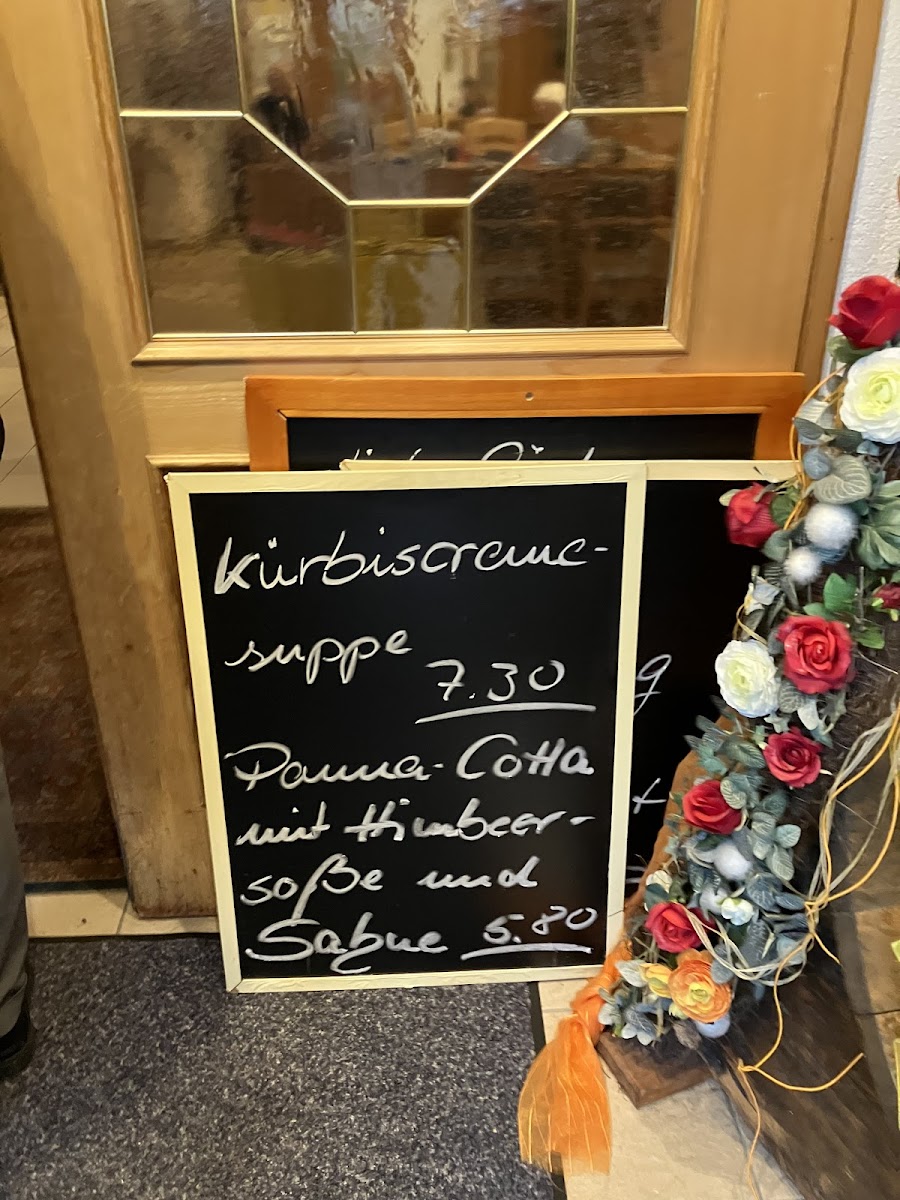 Kürbiscreme-
suppe
7.30
Panna-Cotta
mit Himbeer-
soße und
Sahne 5.80
g